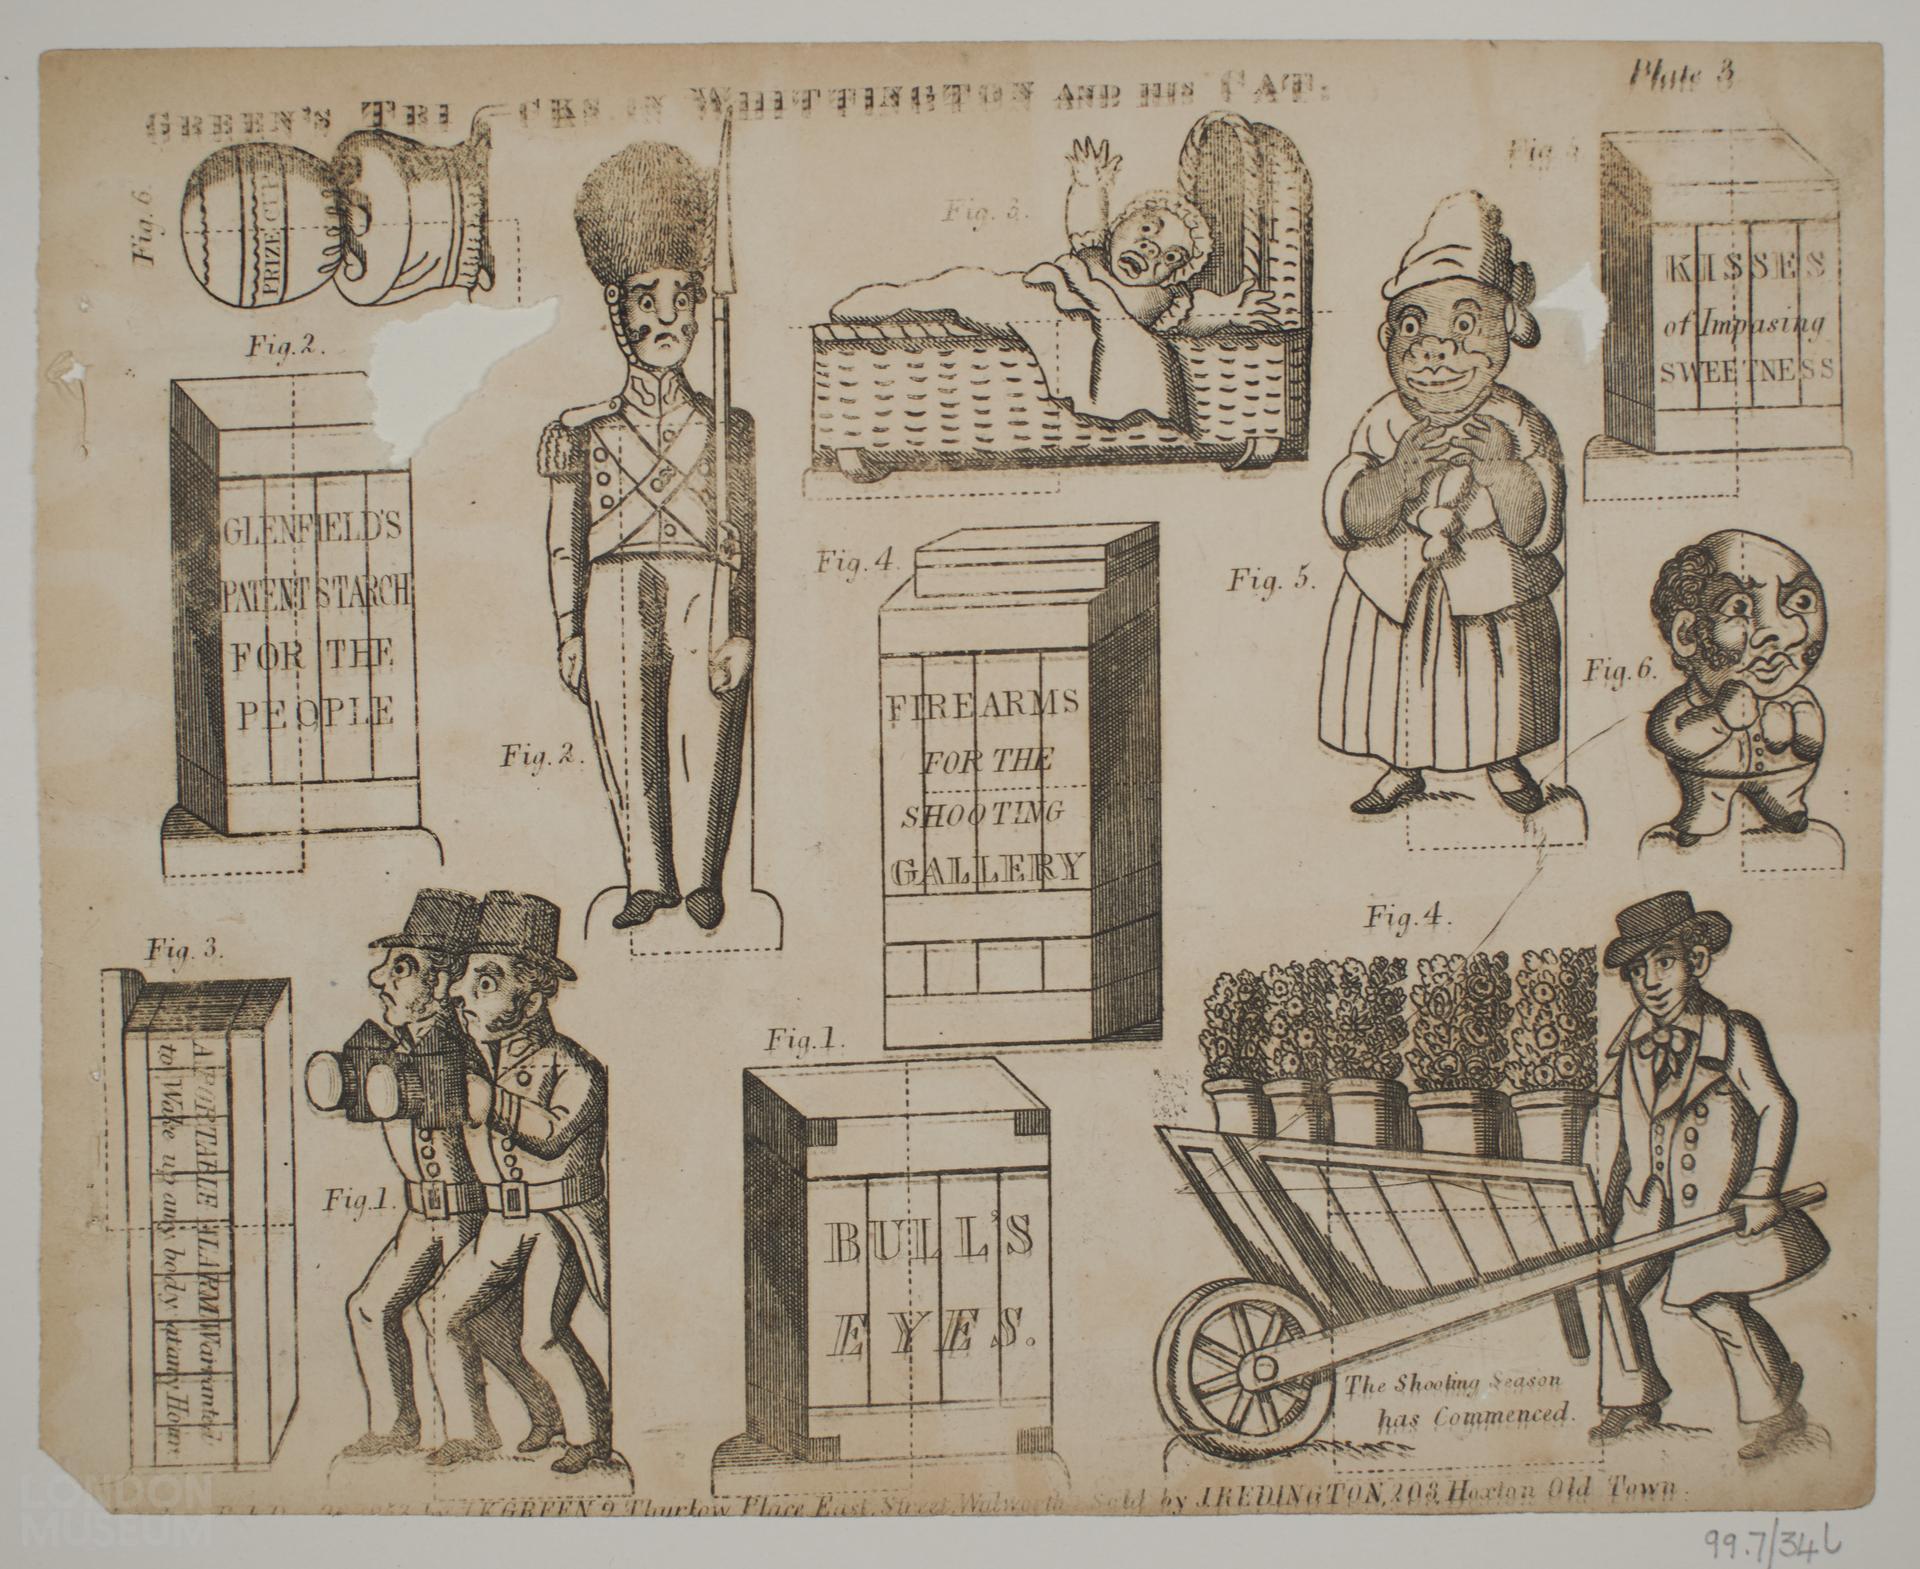 Plate 3
GREEN'S TRICKS IN WHITTINGTON AND HIS CAT.
Fig. 6
PRIZE CUP
Fig. 3.
Fig. 5
KISSES
of Impasing
SWEETNESS
Fig. 2.
GLENFIELD'S
PATENT STARCH
FOR THE
PEOPLE
Fig. 2.
Fig. 4.
FIREARMS
FOR THE
SHOOTING
GALLERY
Fig. 5.
Fig. 6.
Fig. 3.
A PORTABLE ALARM Warranted
to Wake up any body at any Hour
Fig. 1.
Fig. 1.
BULL'S
EYES.
Fig. 4.
The Shooting Season
has Commenced.
by J.K GREEN 9 Thurlow Place East, Street, Walworth. Sold by J. REDINGTON, 208, Hoxton Old Town.
LONDON
MUSEUM
99.7/34